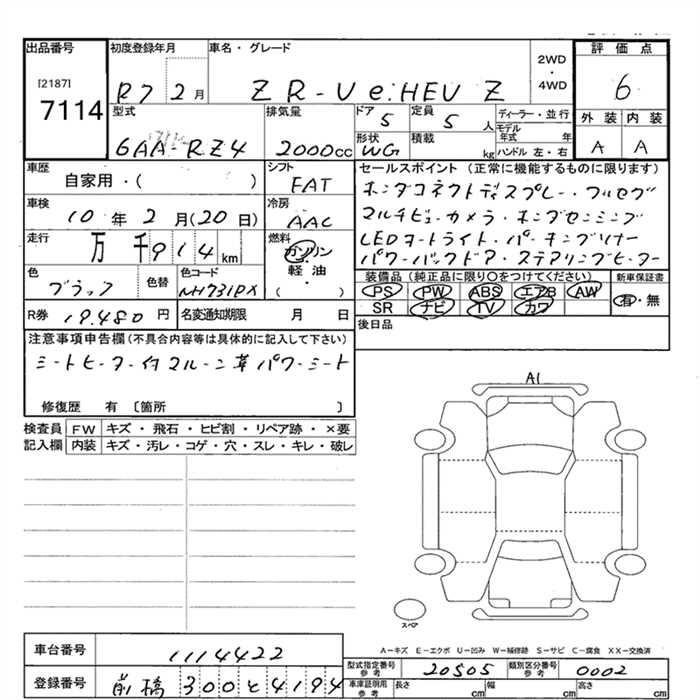 出品番号 初度登録年月 車名・グレード 2WD・4WD 評価点
[2187]
7114 R7 2月 ZR-V e:HEV Z 6
型式 排気量 ドア 定員 ディーラー・並行 外装 内装
6AA-RZ4 2000cc 5 5人 モデル年式 年 A A
形状 積載 ハンドル 左・右
WG kg
車歴 シフト セールスポイント (正常に機能するものに限ります)
自家用・( ) FAT ホンダコネクトディスプレー・フルセグ
車検 冷房 マルチビューカメラ・ホンダセンシング
10年2月(20日) AAC LEDオートライト・パーキングソナー
走行 燃料 パワーバックドア・ステアリングヒーター
万 千914km ガソリン
軽油
( )
色 色替 色コード 装備品(純正品に限り○をつけてください) 新車保証書
ブラック NH731PX PS PW ABS エアB AW 有・無
SR ナビ TV カワ
R券 19,480円 名変通知期限 月 日 後日品
注意事項申告欄(不具合内容等は具体的に記入して下さい)
シートヒーター付 マルーン革 パワーシート
修復歴 有 〔箇所 〕
検査員 FW キズ・飛石・ヒビ割・リペア跡・×要
記入欄 内装 キズ・汚レ・コゲ・穴・スレ・キレ・破レ
A1
スペア
A-キズ E-エクボ U-凹み W-補修跡 S-サビ C-腐食 XX-交換済
車台番号 1114422
型式指定番号 参考 20505 類別区分番号 参考 0002
登録番号 前橋 300 と 4194
車庫証明用 参考 長さ cm 幅 cm 高さ cm